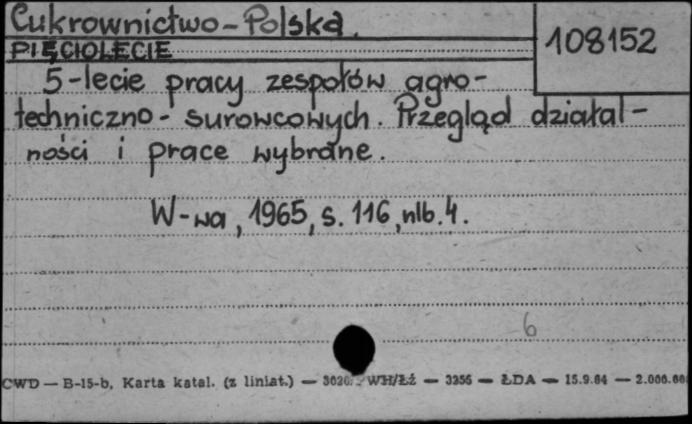 Cukrownictwo-Polska.
108152
PIĘCIOLECIE
5-lecie pracy zespołów agro-
techniczno-surowcowych. Przegląd działal-
ności i prace wybrane.
W-wa, 1965, s. 116, nlb. 4.
6
CWD — B-15-b, Karta katal. (z liniat.) — WH/Łź — 3256 — ŁDA — 15.9.64 —